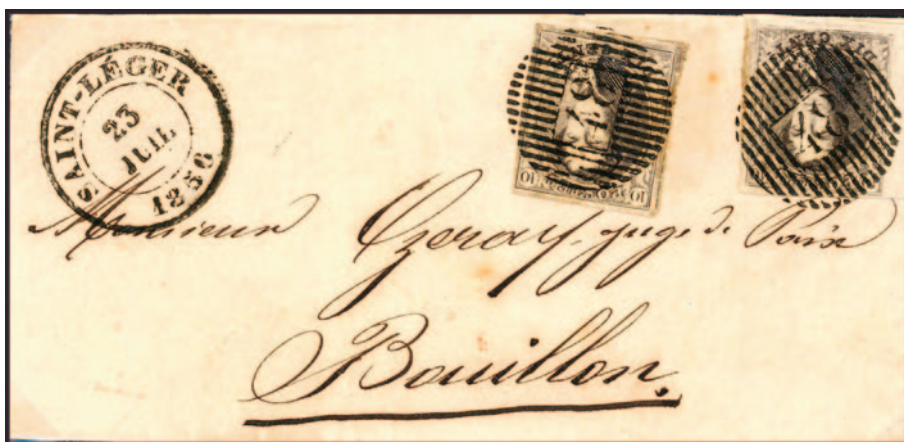 SAINT-LÉGER
23
JUIL
1856
Monsieur
Ozeray, juge de Paix
Bouillon.
10 10